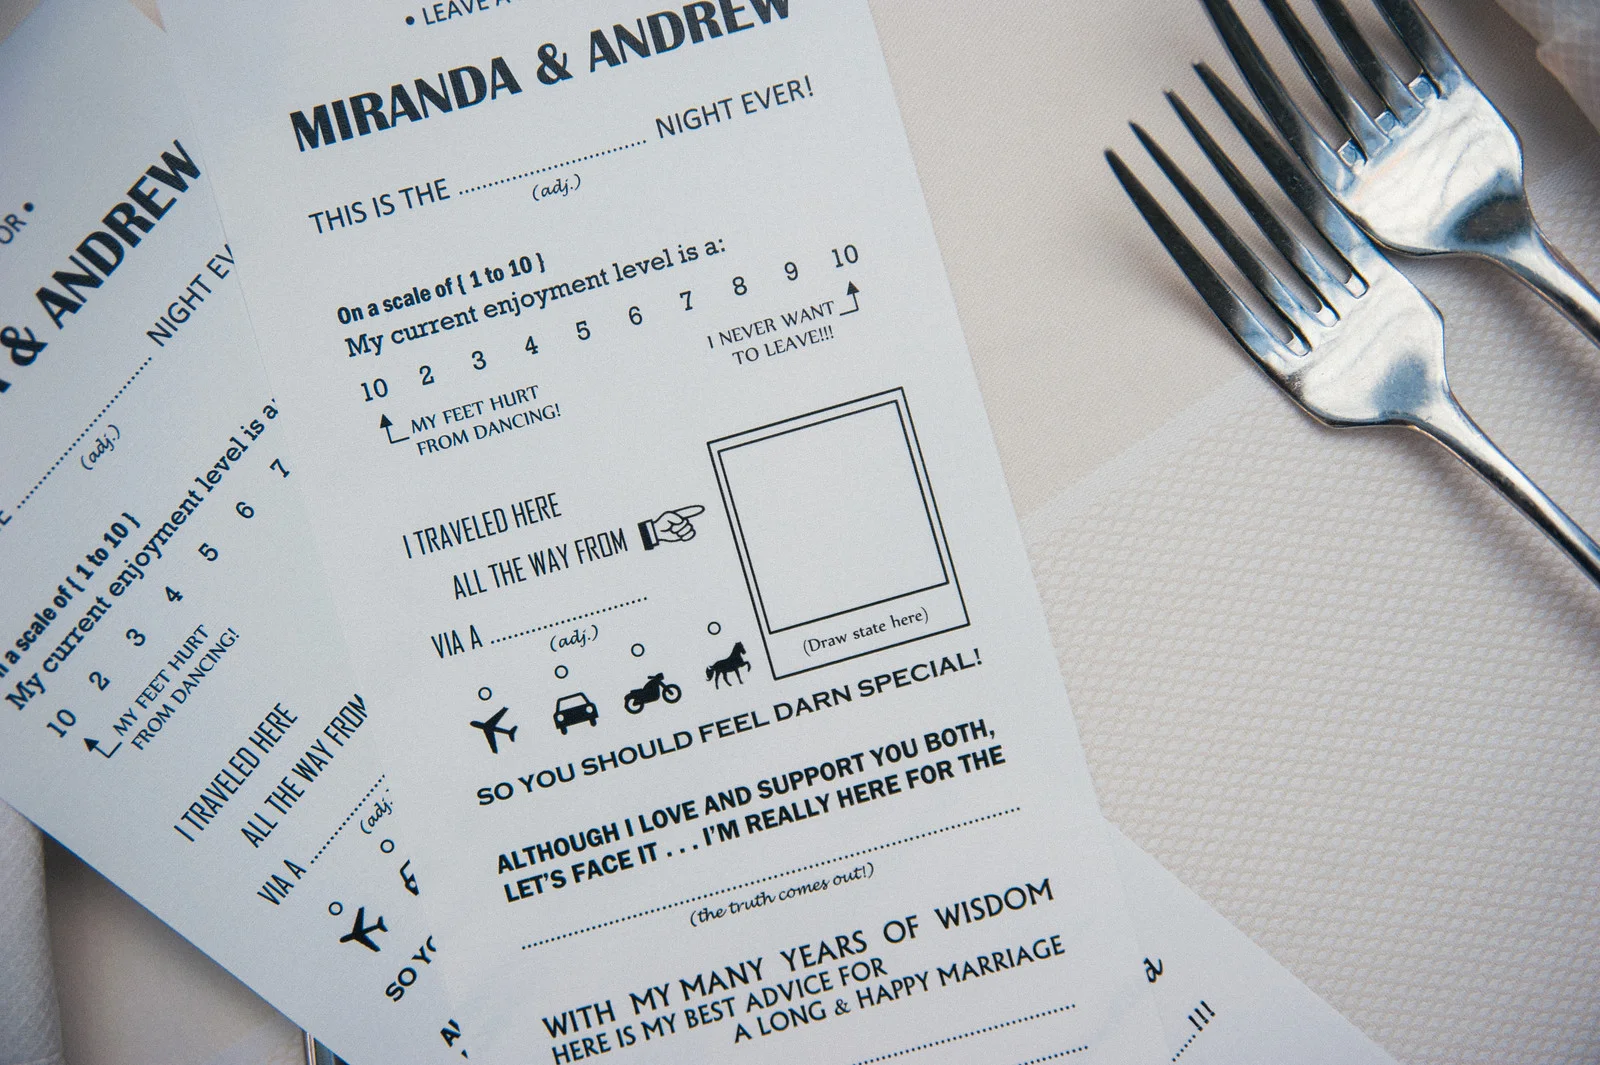 • LEAVE A
MIRANDA & ANDREW
THIS IS THE .............................. NIGHT EVER!
(adj.)
On a scale of { 1 to 10 }
My current enjoyment level is a:
10 2 3 4 5 6 7 8 9 10
MY FEET HURT
FROM DANCING!
I NEVER WANT
TO LEAVE!!!
I TRAVELED HERE
ALL THE WAY FROM
(Draw state here)
VIA A ..............................
(adj.)
SO YOU SHOULD FEEL DARN SPECIAL!
ALTHOUGH I LOVE AND SUPPORT YOU BOTH,
LET'S FACE IT . . . I'M REALLY HERE FOR THE
(the truth comes out!)
WITH MY MANY YEARS OF WISDOM
HERE IS MY BEST ADVICE FOR
A LONG & HAPPY MARRIAGE
OR •
& ANDREW
NIGHT EV
(adj.)
a scale of { 1 to 10 }
My current enjoyment level is a
10 2 3 4 5 6 7
MY FEET HURT
FROM DANCING!
I TRAVELED HERE
ALL THE WAY FROM
VIA A ..............................
(adj.
SO YO
!!!